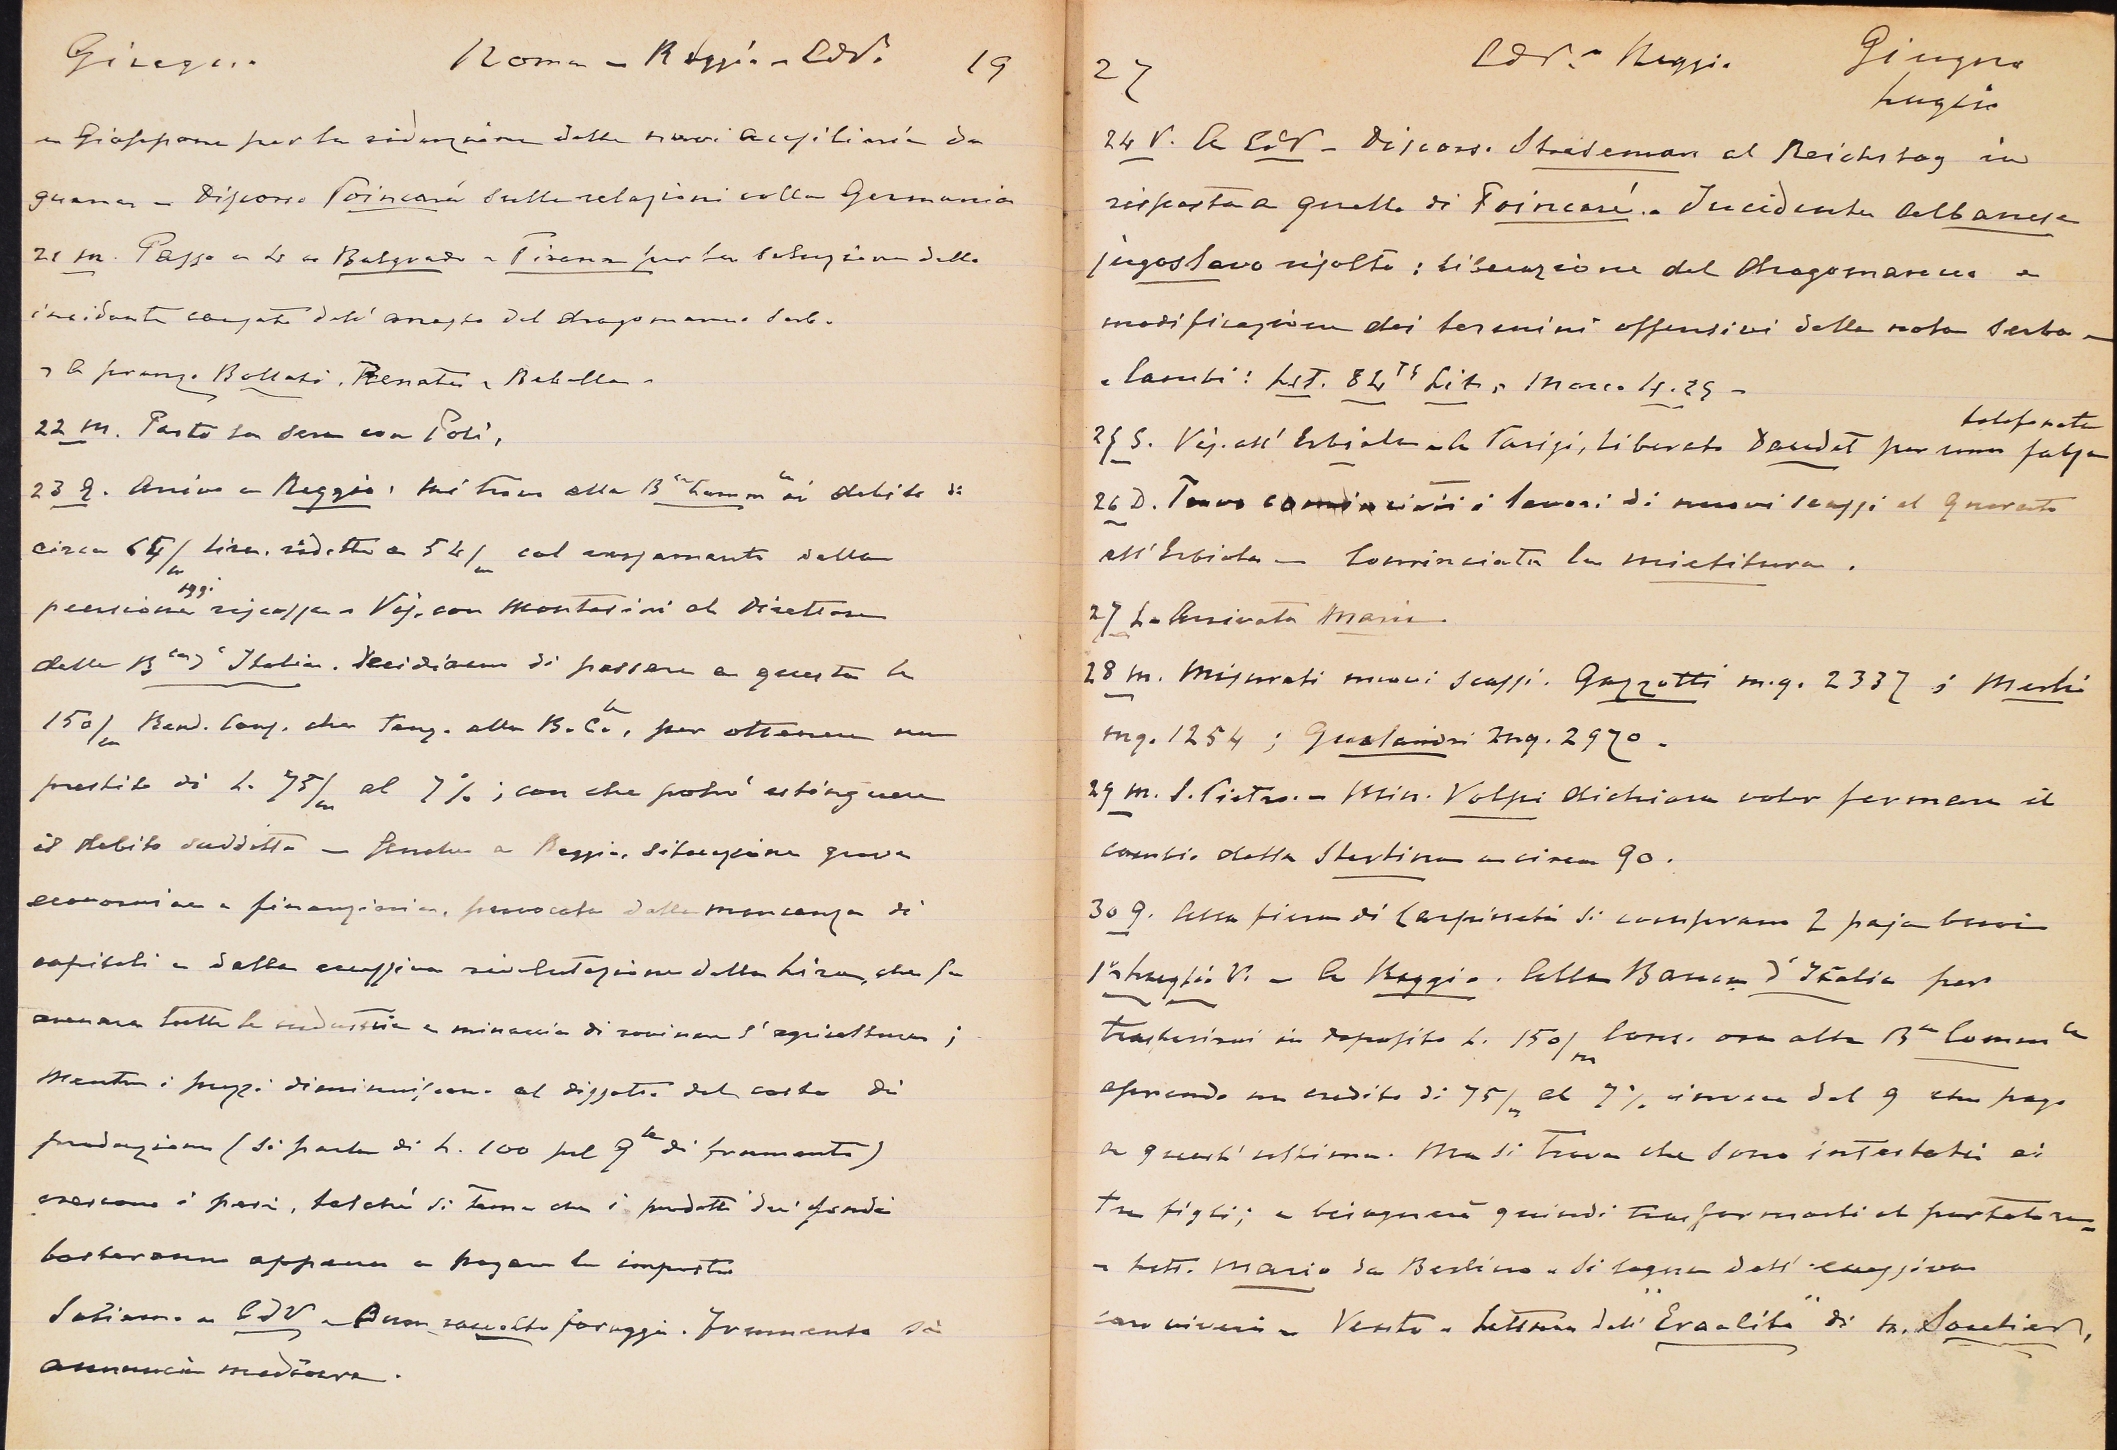 Giugno Roma - Reggio - CdV. 19
e Giappone per la riduzione delle navi ausiliarie da
guerra - Discorso Poincaré sulle relazioni colla Germania
21 M. Passo a Belgrado e Tirana per la soluzione dello
incidente causato dall'arresto del dragomanno serbo.
- A pranzo Bollati, Renata e Babella -
22 M. Parto la sera con Poli,
23 G. Arrivo a Reggio: mi trovo alla B.ca Comm.le in debito di
circa 64/m lire, ridotte a 54/m col versamento della
pensione oggi riscossa - Vis. con Montasini al Direttore
della B.ca d'Italia. Decidiamo di passare a questa le
150/m Rend. Cons. che tengo alla B.C.le, per ottenere un
prestito di L. 75/m al 7%; con che potrò estinguere
il debito suddetto - Anche a Reggio, situazione grave
economica e finanziaria, provocata dalla mancanza di
capitali e dalla eccessiva rivalutazione della Lira, che fa
arenare tutte le industrie e minaccia di rovinare l'agricoltura;
Mentre i prezzi diminuiscono al disotto del costo di
produzione (si parla di L. 100 pel q.le di frumento)
crescono i pesi, talché si teme che i prodotti dei fondi
basteranno appena a pagare le imposte
Saliamo a CdV - Buon raccolto foraggi. Frumento si
annuncia mediocre.
27 CdV. - Reggio Giugno
Luglio
24 V. A CdV - Discorso Streseman al Reichstag in
risposta a quello di Poincaré. - Incidente albanese
jugoslavo risolto: liberazione del dragomanno e
modificazione dei termini offensivi della nota serba -
- Cambi: Lst. 84 Lit., Marco 4.25 -
telefonata
25 S. Vis. all'Erbiola - A Parigi, liberato Daudet per una falsa
26 D. Trovo cominciati i lavori di nuovi scassi al Querceto
all'Erbiola - Cominciata la mietitura.
27 L. Arrivata Maria.
28 M. Misurati nuovi scassi. Gazzotti m.q. 2337; Merli
mq. 1254; Gualandri mq. 2970.
29 M. S. Pietro. - Min. Volpi dichiara voler fermare il
cambio della Sterlina a circa 90.
30 G. Alla fiera di Carpineti si comprano 2 paja buoi
1° Luglio V. - A Reggio. Alla Banca d'Italia per
trasferirvi in deposito L. 150/m Cons. ora alla B.ca Comm.le
aprendo un credito di 75/m al 7% invece del 9 che pago
a quest'ultima. Ma si trova che sono intestati ai
tre figli; e bisognerà quindi trasformarli al portatore -
- Lett. Mario da Berlino - Si lagna dell'eccessivo
caro viveri - Vento - Lettura dell'"Eraclito" di